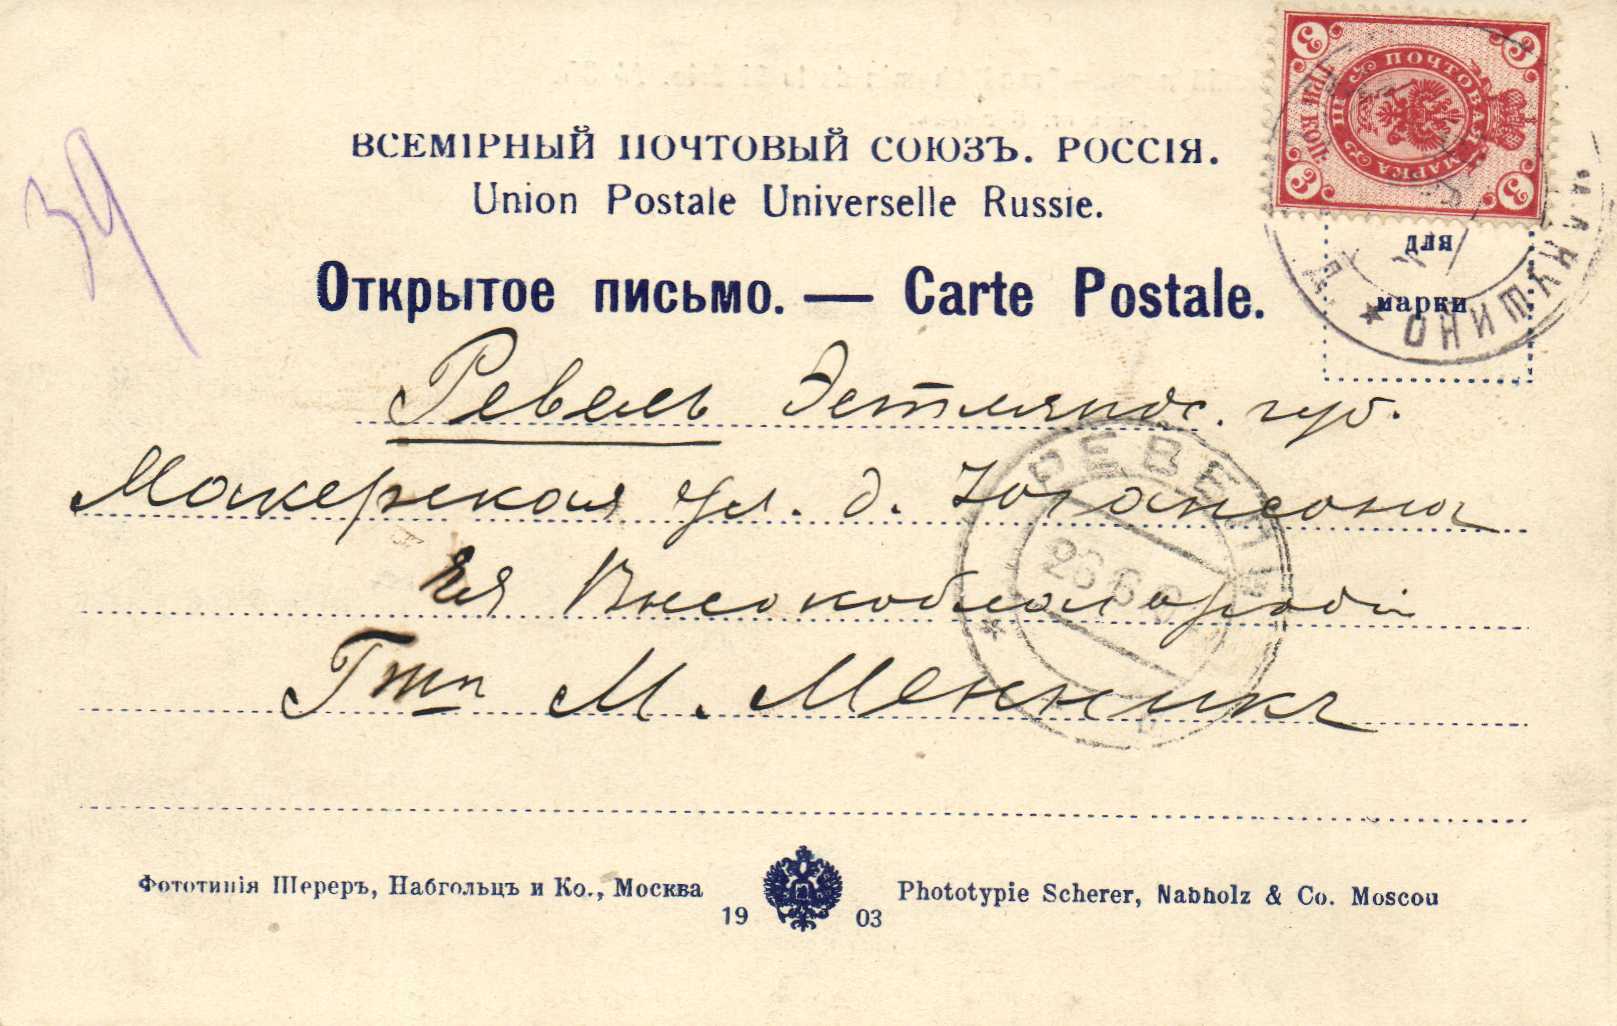 39
ВСЕМІРНЫЙ ПОЧТОВЫЙ СОЮЗЪ. РОССІЯ.
Union Postale Universelle Russie.
Открытое письмо. — Carte Postale.
3 3 3 3
ПОЧТОВАЯ МАРКА
ТРИ КОП.
для
марки
ПУШКИНО
Ревель Эстляндс. губ.
РЕВЕЛЬ
Макерская ул. д. Югансона
Ея Высокоблагородію
Гжѣ М. Менникъ
Фототипія Шереръ, Набгольцъ и Ко., Москва
19 03
Phototypie Scherer, Nabholz & Co. Moscou